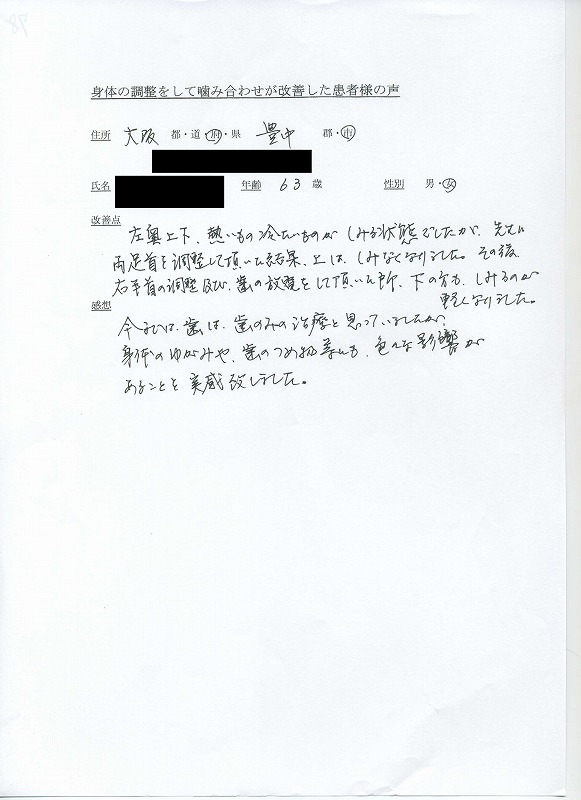 身体の調整をして噛み合わせが改善した患者様の声
住所 大阪 都・道・府・県 豊中 郡・市
氏名 年齢 63 歳 性別 男・女
改善点
左奥上下、熱いもの冷たいものが しみる状態でしたが、先に
両足首を調整して頂いた結果、上は、しみなくなりました。その後
右手首の調整及び、歯の放電をして頂いた所、下の方も、しみるのが
軽くなりました。
感想
今までは、歯は、歯のみの治療と思っていましたが、
身体のゆがみや、歯のつめ物等にも、色々な影響が
あることを実感致しました。